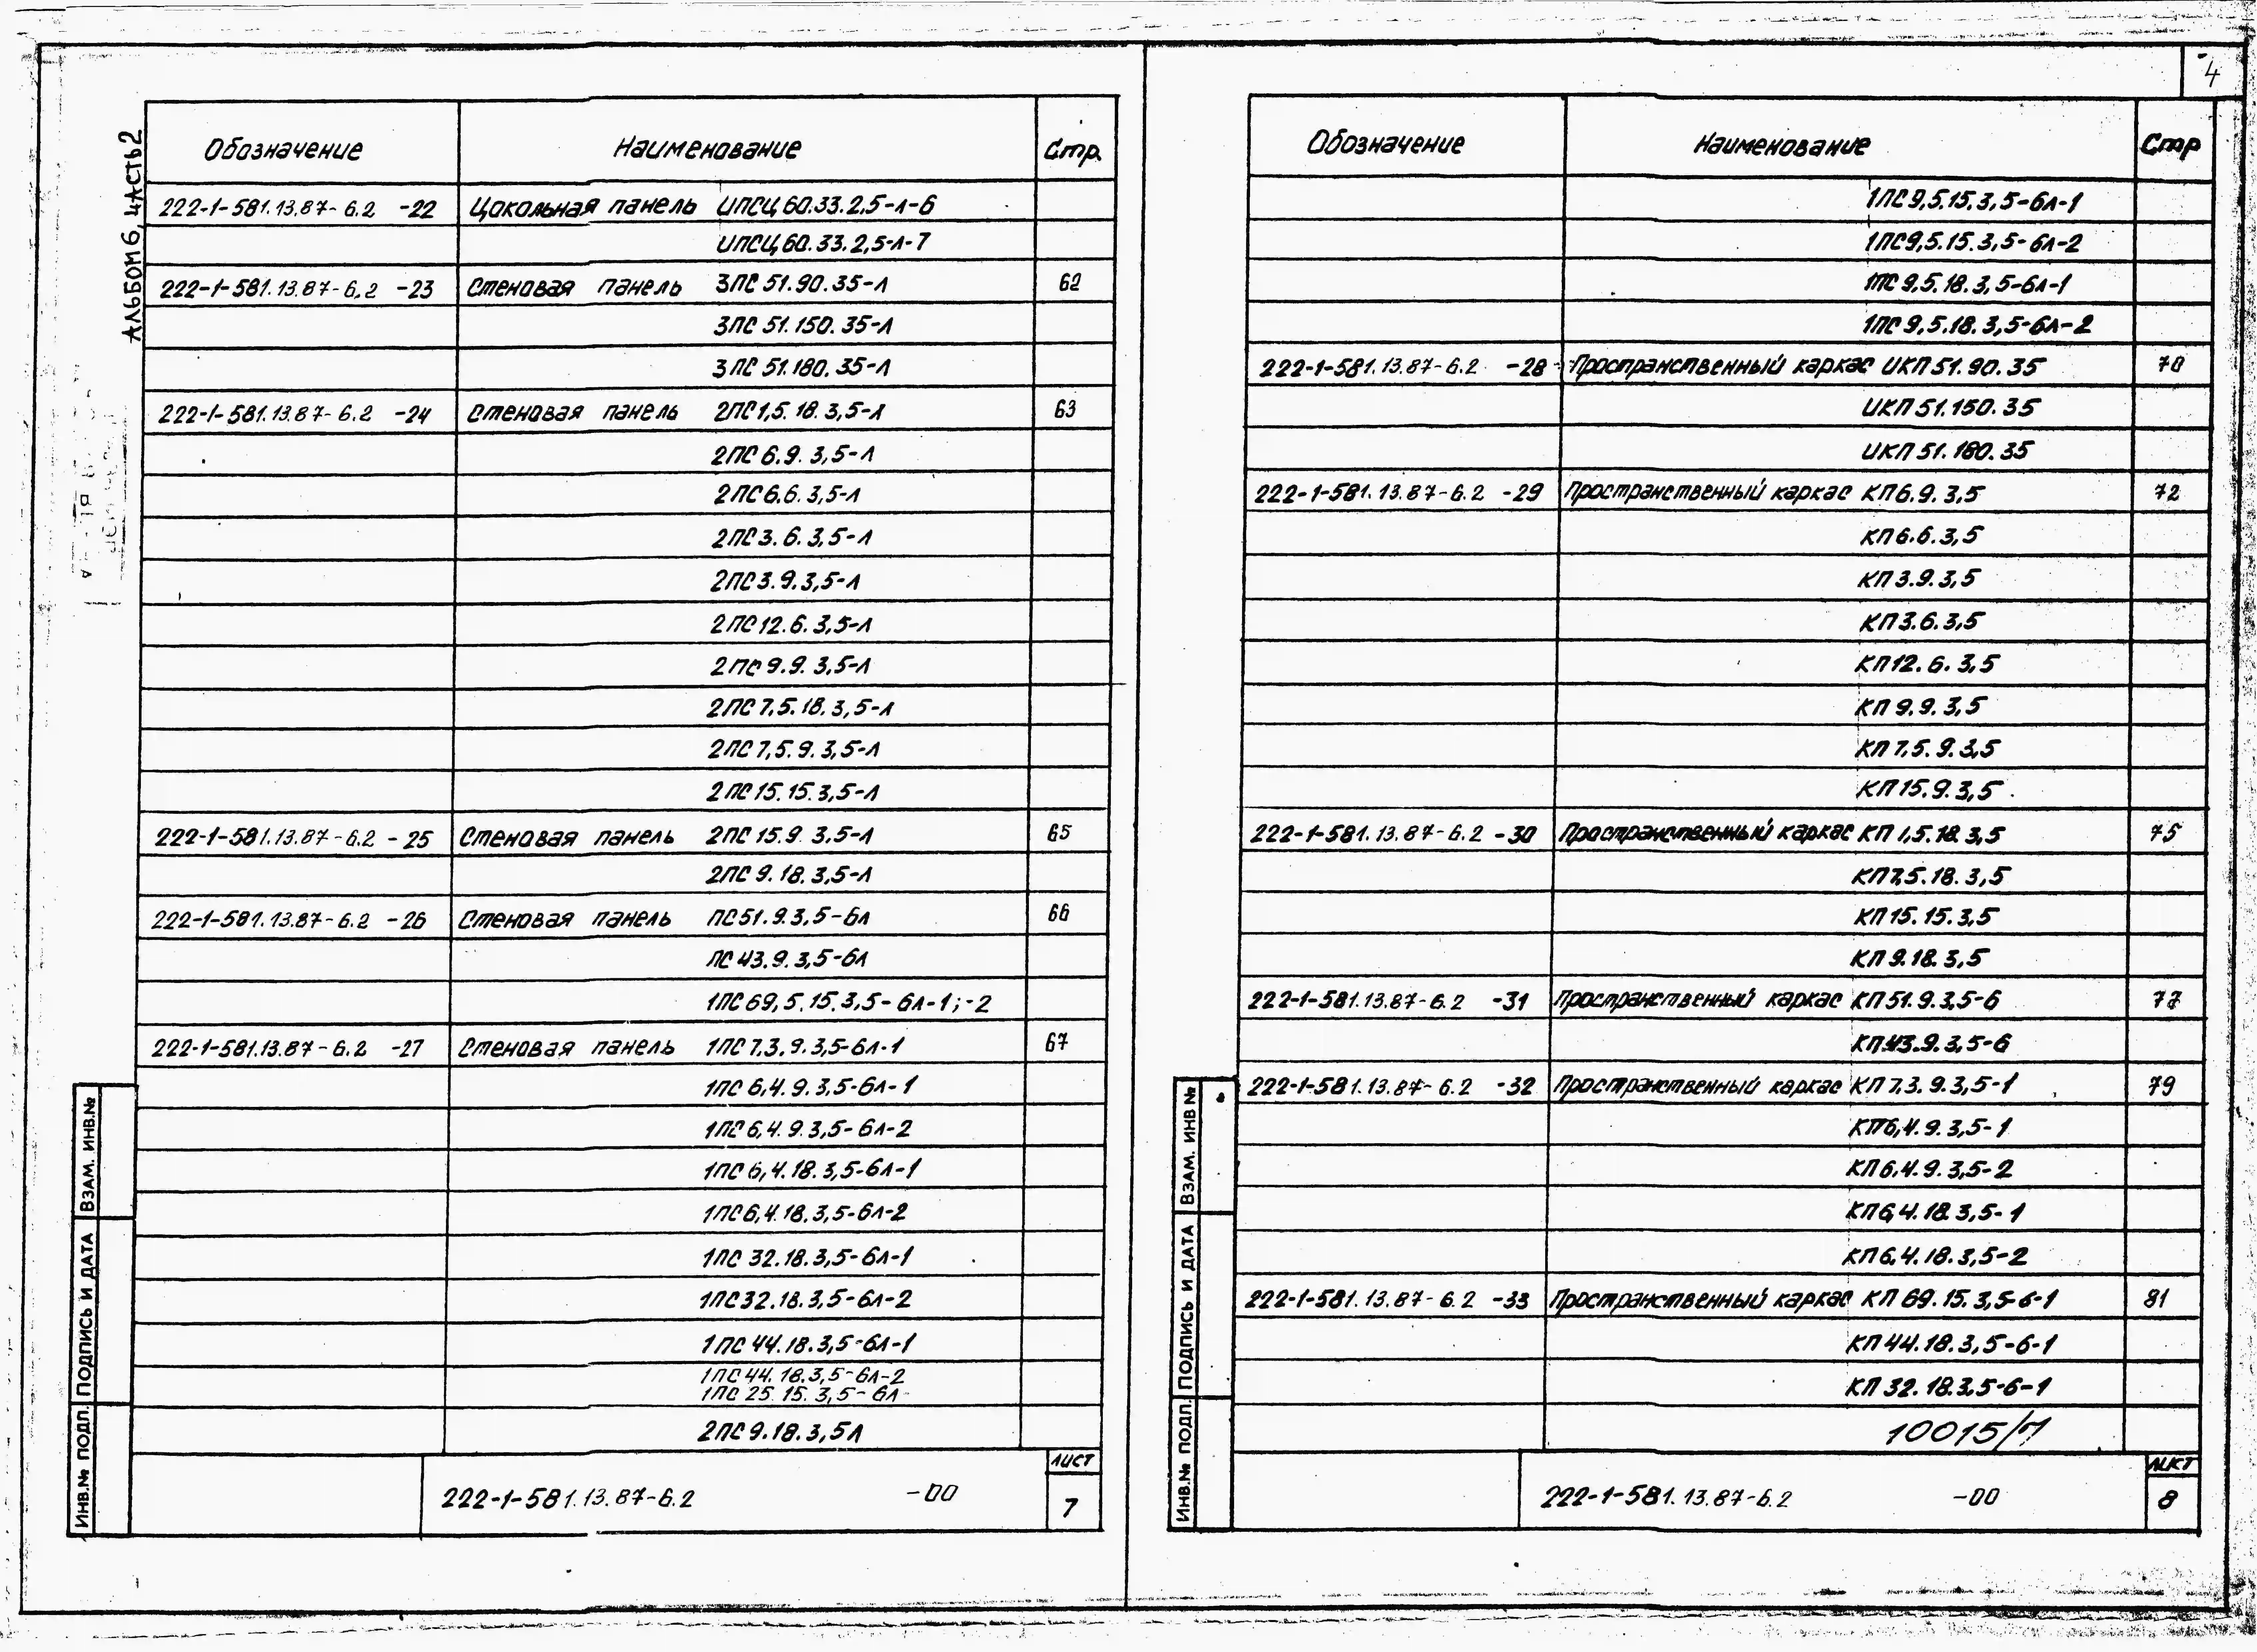 4
АЛЬБОМ 6, ЧАСТЬ 2
Обозначение Наименование Стр.
222-1-581.13.87-6.2 -22 Цокольная панель ИПСЦ 60.33.2,5-Л-6
ИПСЦ 60.33.2,5-Л-7
222-1-581.13.87-6.2 -23 Стеновая панель 3ПС 51.90.35-Л 62
3ПС 51.150.35-Л
3ПС 51.180.35-Л
222-1-581.13.87-6.2 -24 Стеновая панель 2ПС 1,5.18.3,5-Л 63
2ПС 6.9.3,5-Л
2ПС 6.6.3,5-Л
2ПС 3.6.3,5-Л
2ПС 3.9.3,5-Л
2ПС 12.6.3,5-Л
2ПС 9.9.3,5-Л
2ПС 7,5.18.3,5-Л
2ПС 7,5.9.3,5-Л
2ПС 15.15.3,5-Л
222-1-581.13.87-6.2 -25 Стеновая панель 2ПС 15.9.3,5-Л 65
2ПС 9.18.3,5-Л
222-1-581.13.87-6.2 -26 Стеновая панель ПС 51.9.3,5-6Л 66
ПС 43.9.3,5-6Л
1ПС 69,5.15.3,5-6Л-1;-2
222-1-581.13.87-6.2 -27 Стеновая панель 1ПС 7,3.9.3,5-6Л-1 67
1ПС 6,4.9.3,5-6Л-1
1ПС 6,4.9.3,5-6Л-2
1ПС 6,4.18.3,5-6Л-1
1ПС 6,4.18.3,5-6Л-2
1ПС 32.18.3,5-6Л-1
1ПС 32.18.3,5-6Л-2
1ПС 44.18.3,5-6Л-1
1ПС 44.18.3,5-6Л-2
1ПС 25.15.3,5-6Л
2ПС 9.18.3,5Л
ИНВ.№ ПОДЛ. ПОДПИСЬ И ДАТА ВЗАМ. ИНВ.№
222-1-581.13.87-6.2 -00
ЛИСТ
7
Обозначение Наименование Стр
1ПС 9,5.15.3,5-6Л-1
1ПС 9,5.15.3,5-6Л-2
1ПС 9,5.18.3,5-6Л-1
1ПС 9,5.18.3,5-6Л-2
222-1-581.13.87-6.2 -28 Пространственный каркас ИКП 51.90.35 70
ИКП 51.150.35
ИКП 51.180.35
222-1-581.13.87-6.2 -29 Пространственный каркас КП 6.9.3,5 72
КП 6.6.3,5
КП 3.9.3,5
КП 3.6.3,5
КП 12.6.3,5
КП 9.9.3,5
КП 7,5.9.3,5
КП 15.9.3,5
222-1-581.13.87-6.2 -30 Пространственный каркас КП 1,5.18.3,5 75
КП 7,5.18.3,5
КП 15.15.3,5
КП 9.18.3,5
222-1-581.13.87-6.2 -31 Пространственный каркас КП 51.9.3,5-6 77
КП 43.9.3,5-6
222-1-581.13.87-6.2 -32 Пространственный каркас КП 7,3.9.3,5-1 79
КП 6,4.9.3,5-1
КП 6,4.9.3,5-2
КП 6,4.18.3,5-1
КП 6,4.18.3,5-2
222-1-581.13.87-6.2 -33 Пространственный каркас КП 69.15.3,5-6-1 81
КП 44.18.3,5-6-1
КП 32.18.3,5-6-1
10015/7
ИНВ.№ ПОДЛ. ПОДПИСЬ И ДАТА ВЗАМ. ИНВ №
222-1-581.13.87-6.2 -00
ЛИСТ
8